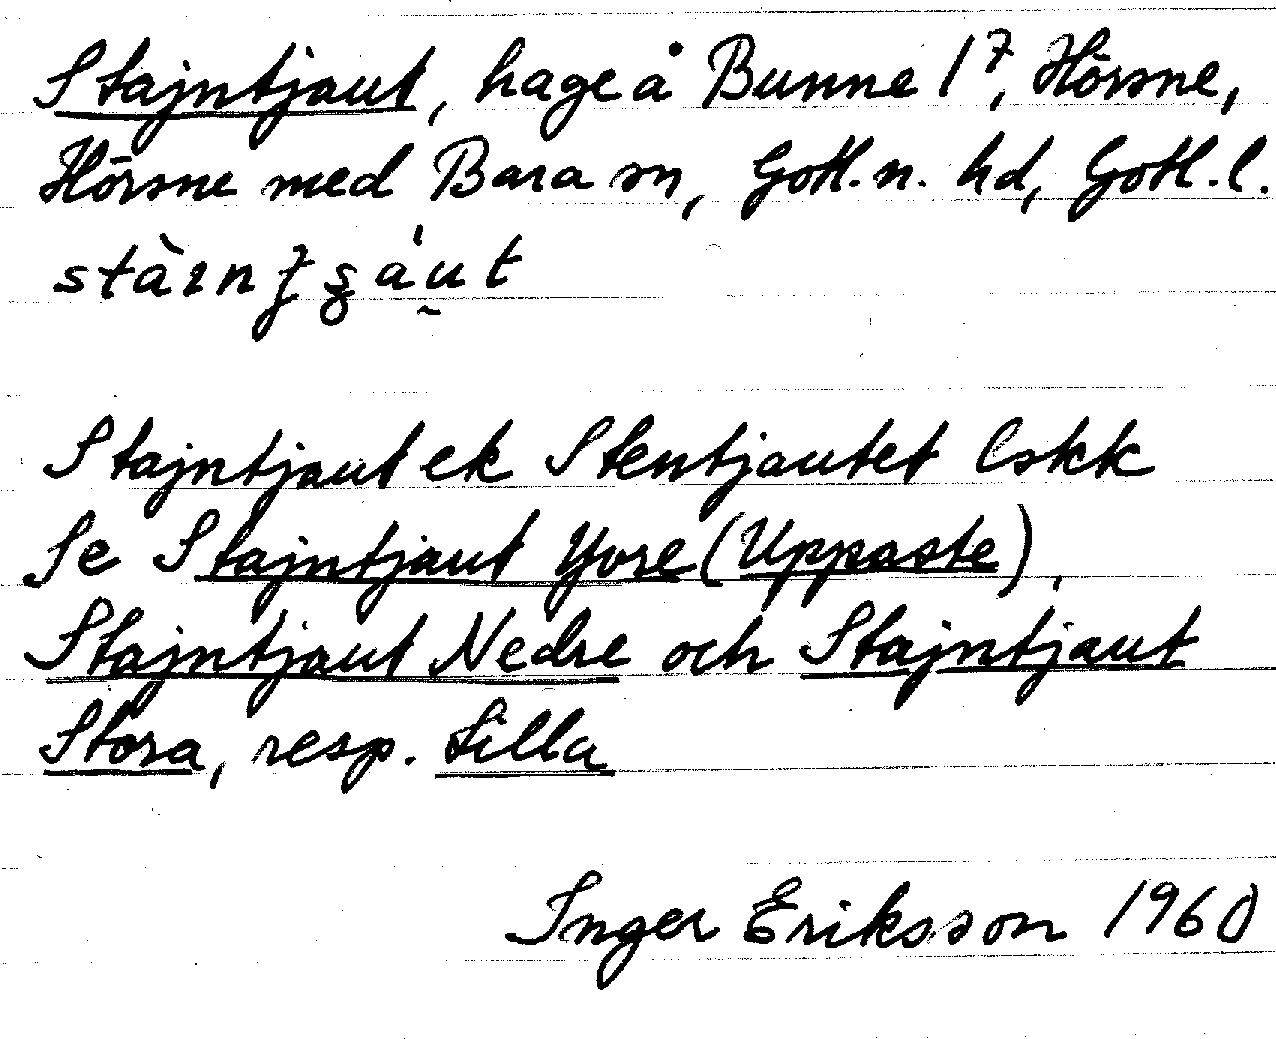 Stajntjaut, hage å Bunne 1⁷, Hörsne,
Hörsne med Bara sn, Gotl. n. hd, Gotl. l.
Stajntjaut ek Stentjautet Eskk
Se Stajntjaut Yvre (Uppaste),
Stajntjaut Nedre och Stajntjaut
Stora, resp. Lilla
Inger Eriksson 1960